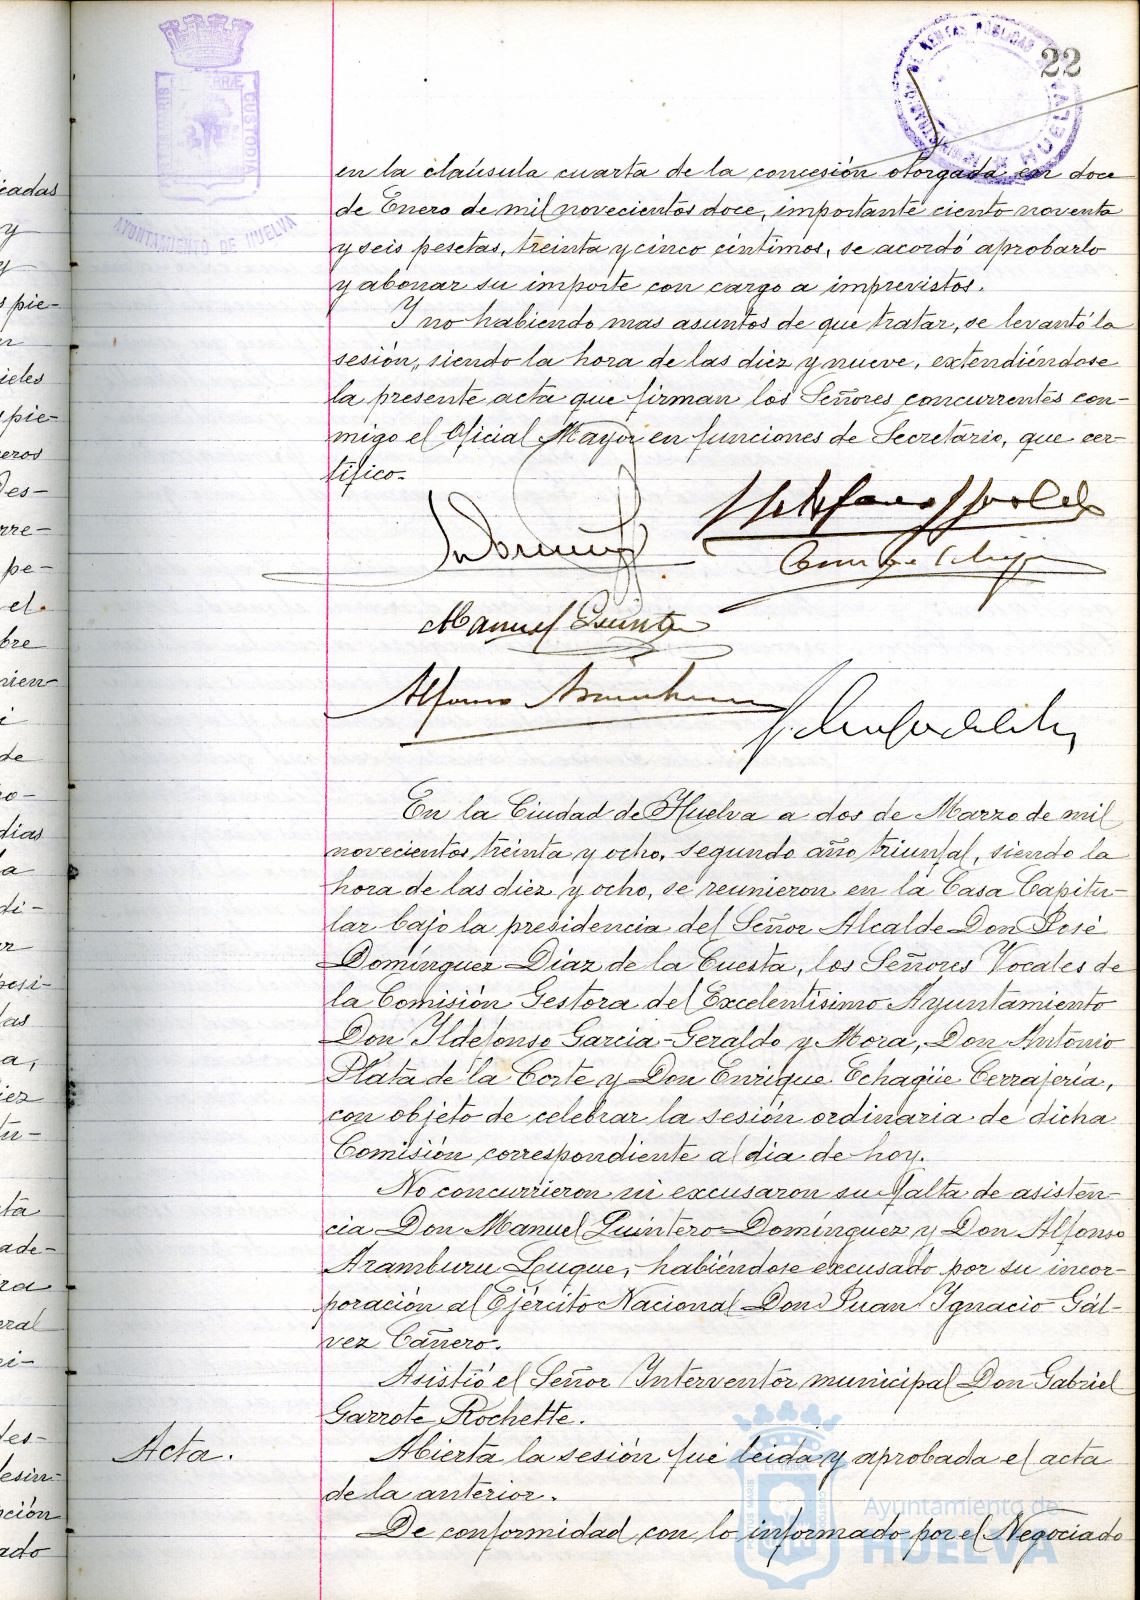 22
AYUNTAMIENTO DE HUELVA
en la claúsula cuarta de la concesión otorgada en doce
de Enero de mil novecientos doce, importante ciento noventa
y seis pesetas, treinta y cinco céntimos, se acordó aprobarlo
y abonar su importe con cargo a imprevistos.
Y no habiendo mas asuntos de que tratar, se levantó la
sesión, siendo la hora de las diez y nueve, extendiéndose
la presente acta que firman los Señores concurrentes con-
migo el Oficial Mayor en funciones de Secretario, que cer-
tifico.
Manuel Quintero
Alfonso Aramburu
En la Ciudad de Huelva a dos de Marzo de mil
novecientos treinta y ocho, segundo año triunfal, siendo la
hora de las diez y ocho, se reunieron en la Casa Capitu-
lar bajo la presidencia del Señor Alcalde Don José
Domínguez Díaz de la Cuesta, los Señores Vocales de
la Comisión Gestora del Excelentísimo Ayuntamiento
Don Ildefonso García-Geraldo y Mora, Don Antonio
Plata de la Corte y Don Enrique Echagüe Cerrajería,
con objeto de celebrar la sesión ordinaria de dicha
Comisión correspondiente al día de hoy.
No concurrieron ni excusaron su falta de asisten-
cia Don Manuel Quintero Domínguez y Don Alfonso
Aramburu Luque, habiéndose excusado por su incor-
poración al Ejército Nacional Don Juan Ignacio Gál-
vez Cañero.
Asistió el Señor Interventor municipal Don Gabriel
Garrote Rochette.
Acta.
Abierta la sesión fué leida y aprobada el acta
de la anterior.
De conformidad con lo informado por el Negociado
Ayuntamiento de
HUELVA